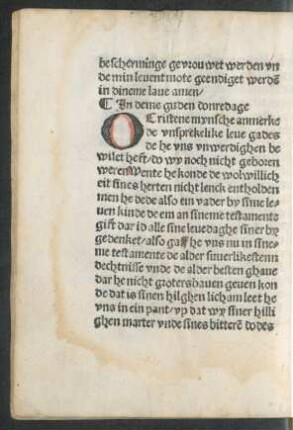 beschermĩnge gevrouwet werden vn
de min levent mote geendiget werdẽ
in dineme lave amen/
¶ In deme guden donredage
O Cristene mynsche anmerke
de vnsprekelike leve gades
de he vns vnwerdighen be
wiset heft/do wy noch nicht geboren
weren Wente he konde de wolwillich
eit sines herten nicht lenck entholden
men he dede also ein vader by sine le-
uen kinde de em an sineme testamente
gift dar id alle sine leuedaghe siner by
gedenket/also gaff he vns nu in sine-
me testamente de alder suuerlikestenn
dechtnisse vnde de alder besten ghaue
dar he nicht groters bauen geuen kon
de dat is sinen hilghen licham leet he
vns in ein pant/vp dat wy siner hilli
ghen marter vnde sines bitterẽ dodes